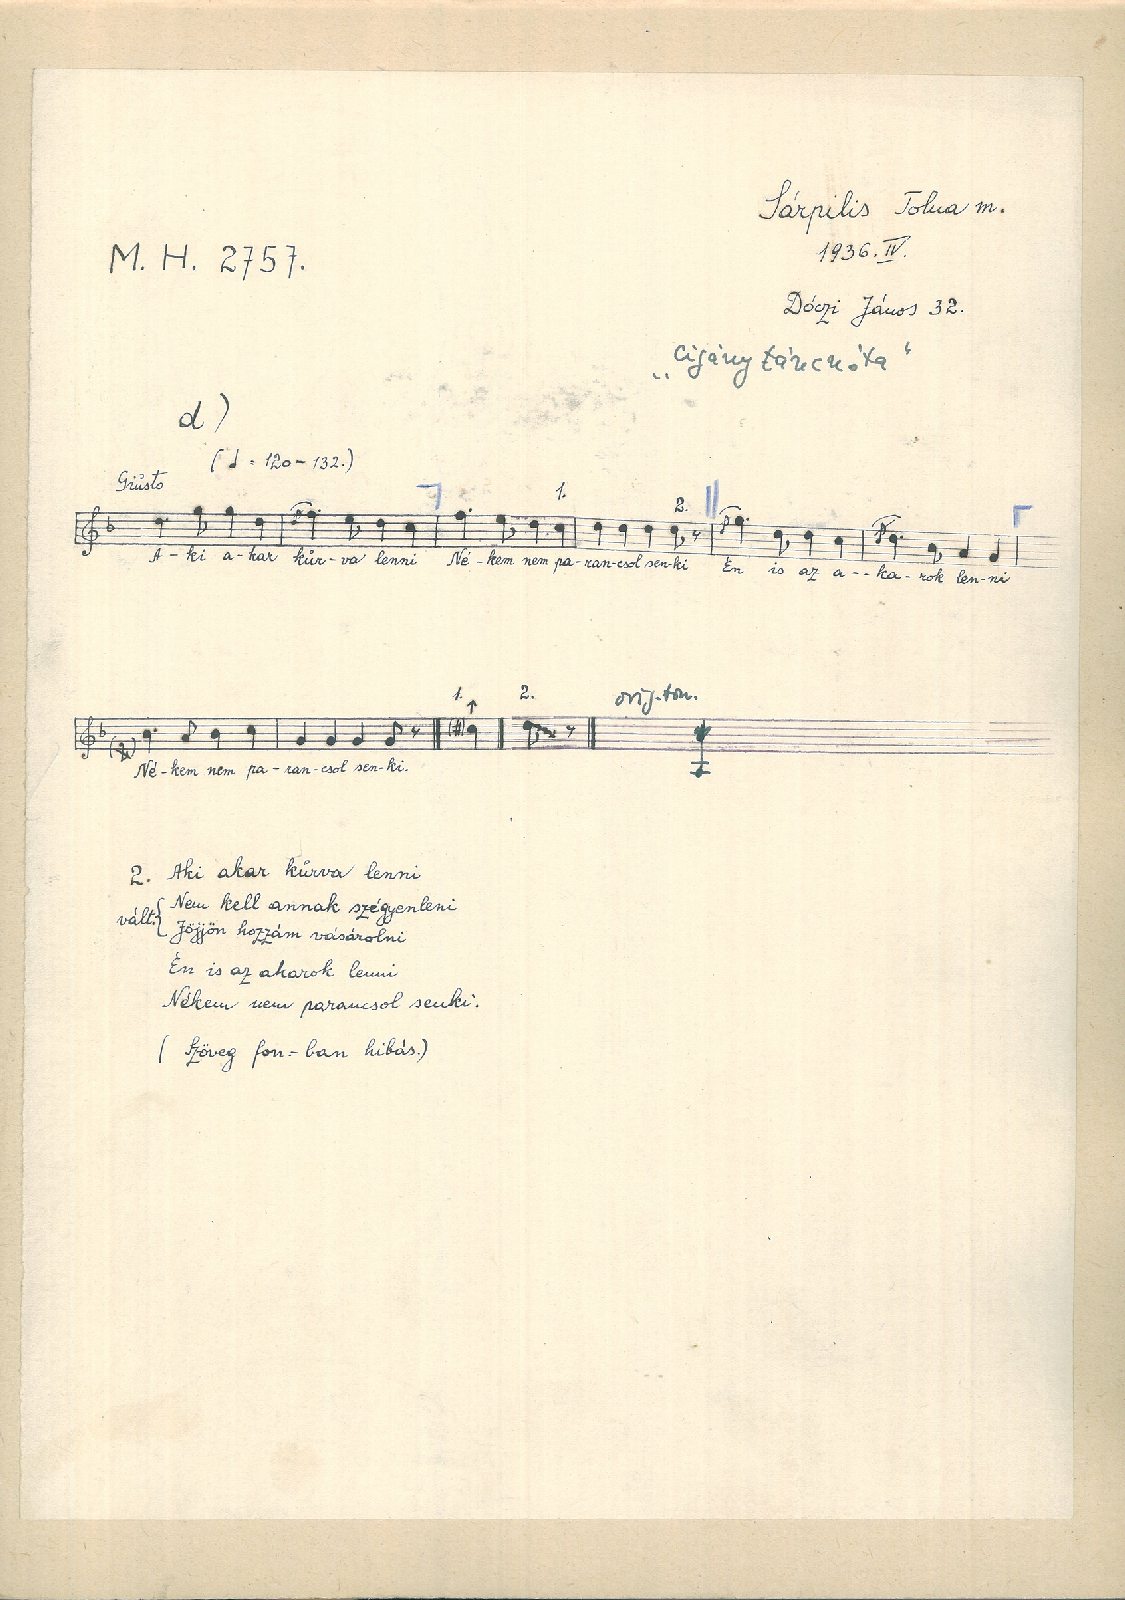 Sárpilis Tolna m.
M. H. 2757.
1936. IV.
Dóczi János 32.
„Cigány táncnóta"
d)
(♩ = 120 – 132.)
Giusto
1.
2.
A - ki a - kar kůr - va lenni Né - kem nem pa - ran - csol sen - ki Én is az a - - ka - rok len - ni
1. 2. orig. ton.
Né - kem nem pa - ran - csol sen - ki.
2. Aki akar kůrva lenni
vált. { Nem kell annak szégyenleni
Jöjjön hozzám vásárolni
Én is az akarok lenni
Nékem nem parancsol senki.
( Szöveg fon = ban hibás.)